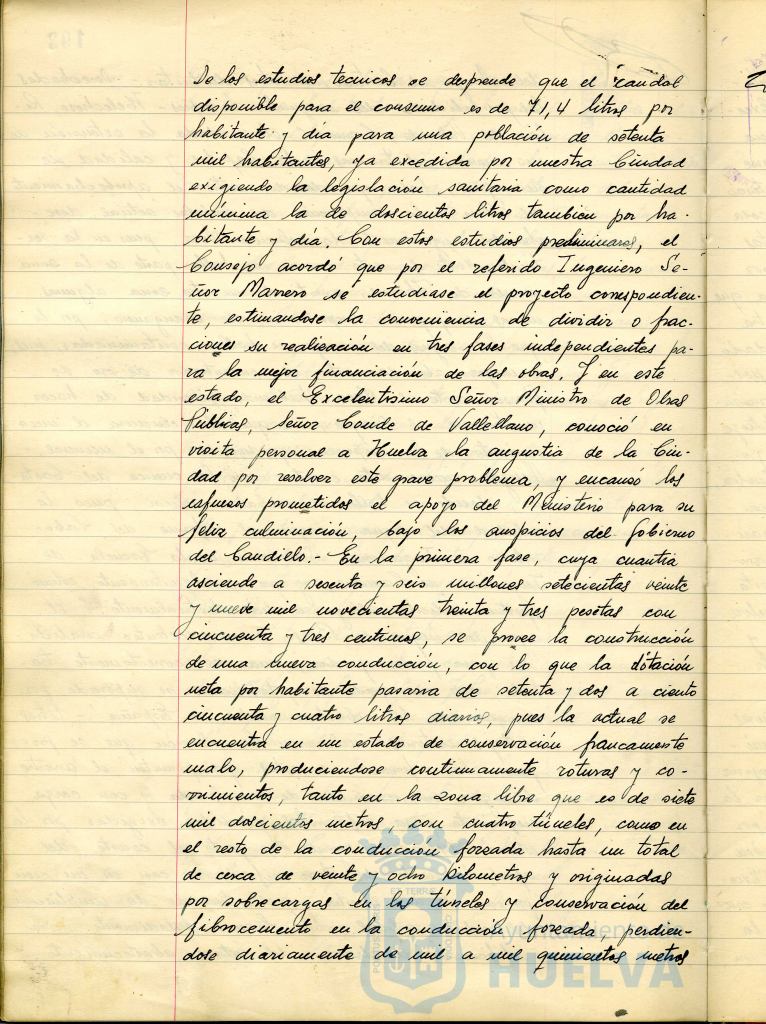 De los estudios tecnicos se desprende que el caudal
disponible para el consumo es de 71,4 litros por
habitante y día para una población de setenta
mil habitantes, ya excedida por nuestra Ciudad
exigiendo la legislación sanitaria como cantidad
mínima la de doscientos litros tambien por ha-
bitante y día. Con estos estudios preliminares, el
Consejo acordó que por el referido Ingeniero Se-
ñor Marrero se estudiase el proyecto correspondien-
te, estimandose la conveniencia de dividir o frac-
ciones su realización en tres fases independientes pa-
ra la mejor financiación de las obras. Y en este
estado, el Excelentisimo Señor Ministro de Obras
Públicas, Señor Conde de Vallellano, conoció en
visita personal a Huelva la angustia de la Ciu-
dad por resolver este grave problema, y encausó los
esfuersos prometidos el apoyo del Ministerio para su
feliz culminación, bajo los auspicios del Gobierno
del Caudillo.- En la primera fase, cuya cuantia
asciende a sesenta y seis millones setecientas veinte
y nueve mil novecientas treinta y tres pesetas con
cincuenta y tres centimos, se provee la construcción
de una nueva conducción, con lo que la dotación
neta por habitante pasaria de setenta y dos a ciento
cincuenta y cuatro litros diarios, pues la actual se
encuentra en un estado de conservación francamente
malo, produciendose continuamente roturas y co-
rrimientos, tanto en la zona libre que es de siete
mil doscientos metros, con cuatro túneles, como en
el resto de la conducción forzada hasta un total
de cerca de veinte y ocho kilometros y originadas
por sobrecargas en los túneles y conservación del
fibrocemento en la conducción forzada, perdien-
dose diariamente de mil a mil quinientos metros
Ayuntamiento de
HUELVA